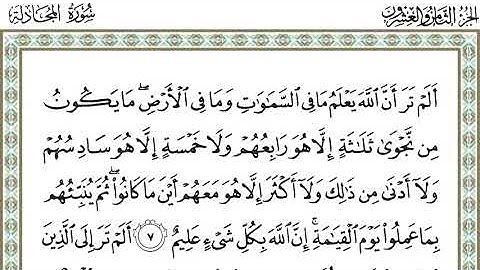 الجزء الثامن والعشرون
سورة المجادلة
أَلَمْ تَرَ أَنَّ ٱللَّهَ يَعْلَمُ مَا فِى ٱلسَّمَٰوَٰتِ وَمَا فِى ٱلْأَرْضِ ۖ مَا يَكُونُ
مِن نَّجْوَىٰ ثَلَٰثَةٍ إِلَّا هُوَ رَابِعُهُمْ وَلَا خَمْسَةٍ إِلَّا هُوَ سَادِسُهُمْ
وَلَآ أَدْنَىٰ مِن ذَٰلِكَ وَلَآ أَكْثَرَ إِلَّا هُوَ مَعَهُمْ أَيْنَ مَا كَانُوا۟ ۖ ثُمَّ يُنَبِّئُهُم
بِمَا عَمِلُوا۟ يَوْمَ ٱلْقِيَٰمَةِ ۚ إِنَّ ٱللَّهَ بِكُلِّ شَىْءٍ عَلِيمٌ ٧ أَلَمْ تَرَ إِلَى ٱلَّذِينَ